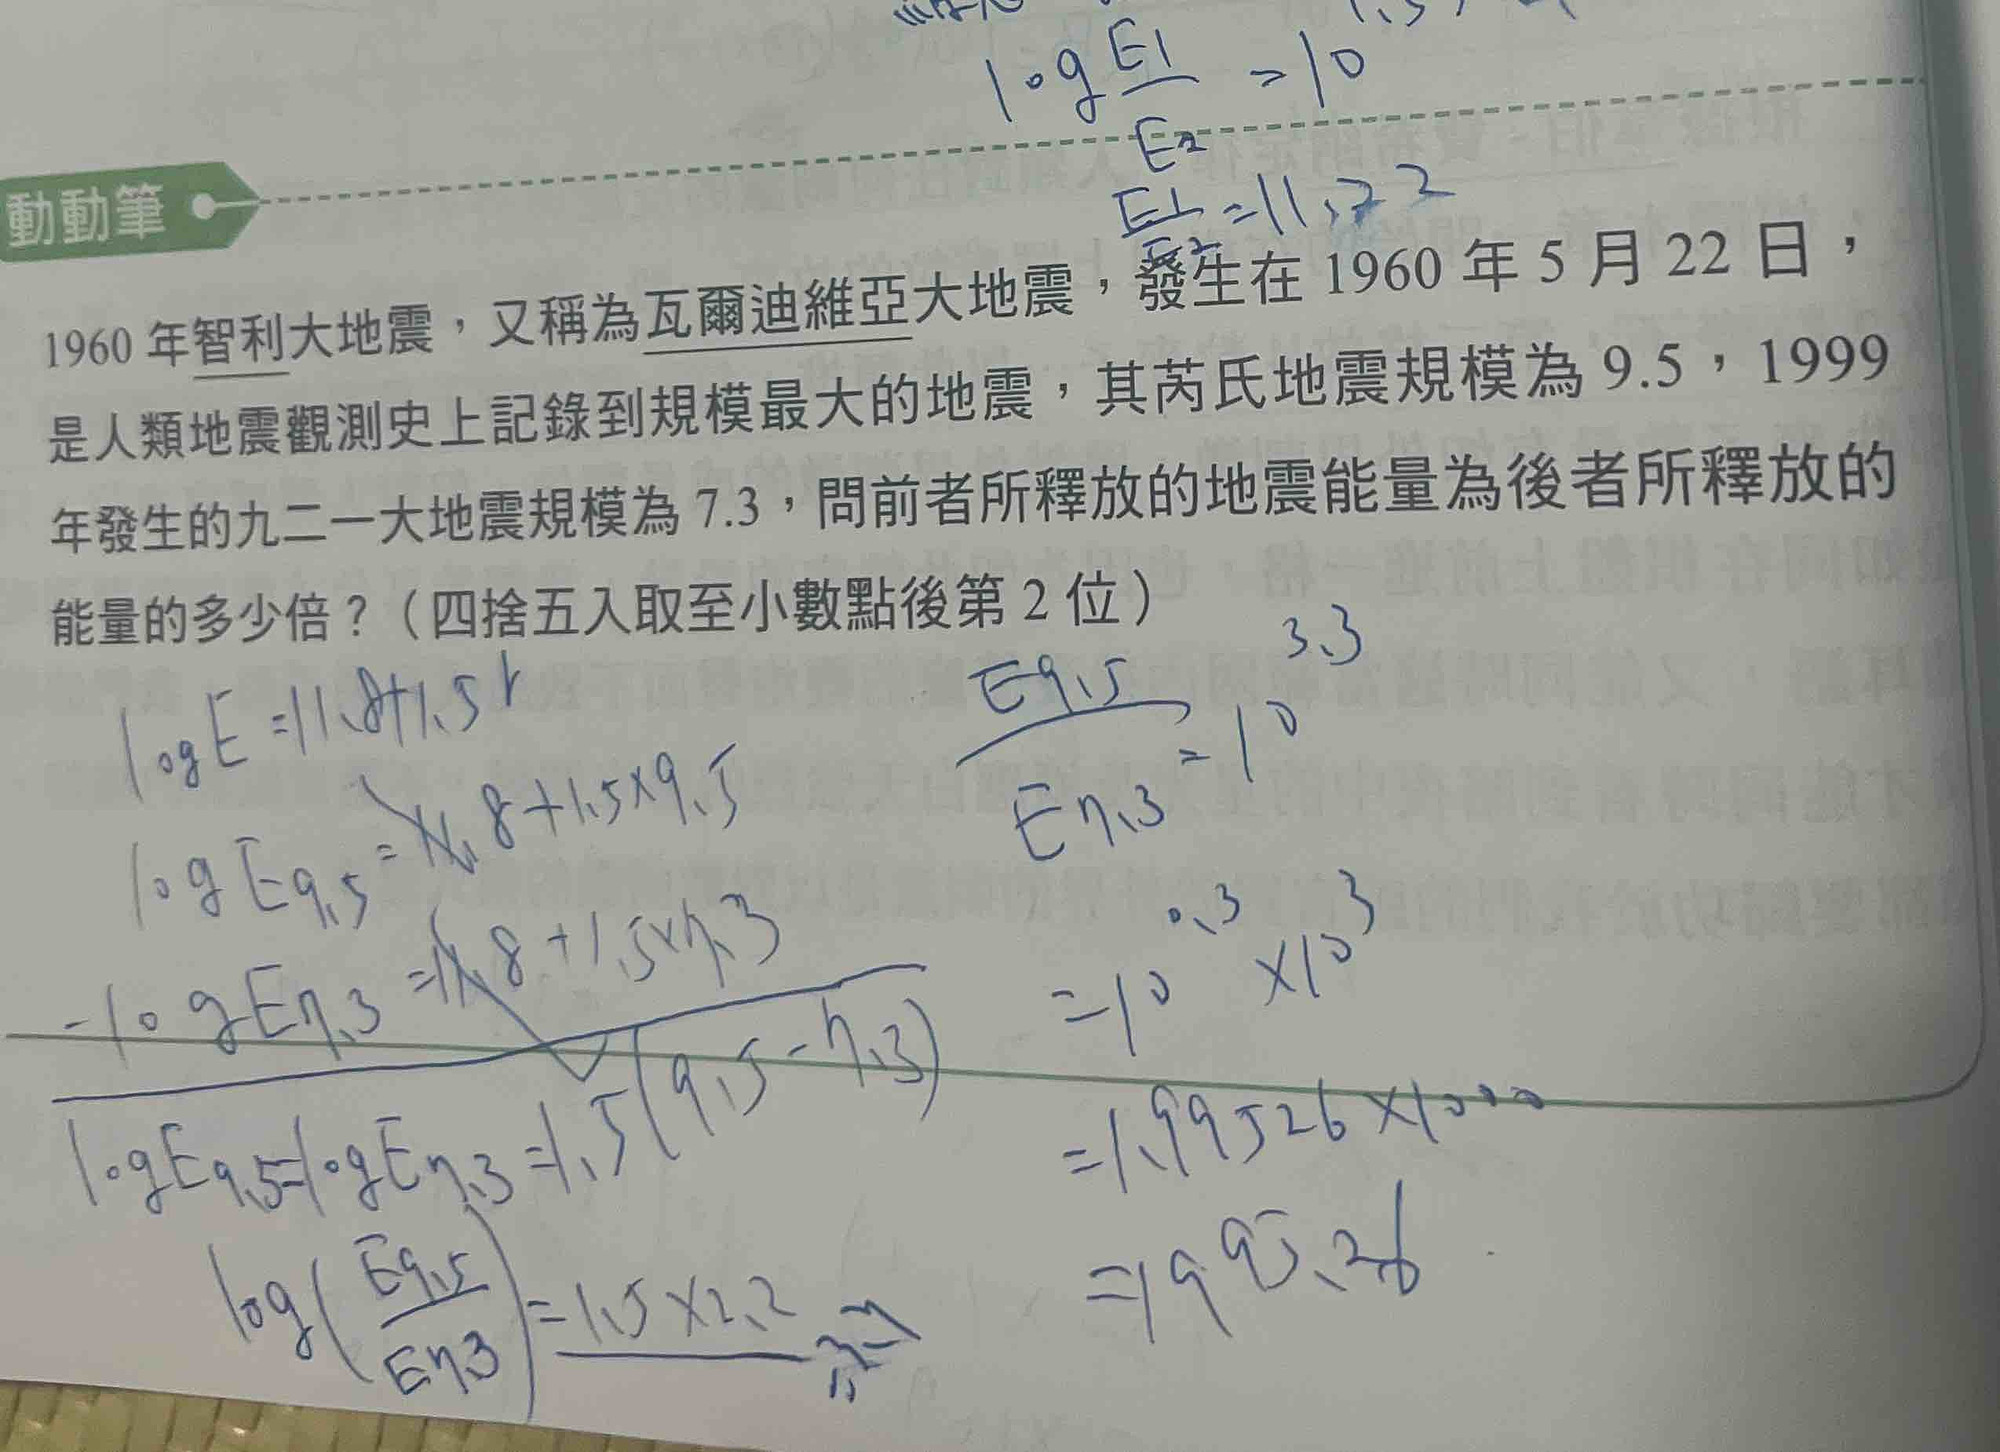 log E1/E2 = 10
E1/E2 = 11.22
動動筆
1960 年智利大地震，又稱為瓦爾迪維亞大地震，發生在 1960 年 5 月 22 日，
是人類地震觀測史上記錄到規模最大的地震，其芮氏地震規模為 9.5，1999
年發生的九二一大地震規模為 7.3，問前者所釋放的地震能量為後者所釋放的
能量的多少倍？（四捨五入取至小數點後第 2 位）
log E = 11.8+1.5r
log E9.5 = 11.8+1.5×9.5
-log E7.3 = 11.8+1.5×7.3
log E9.5 - log E7.3 = 1.5(9.5-7.3)
log(E9.5/E7.3) = 1.5×2.2
E9.5/E7.3 = 10^3.3
= 10^0.3 × 10^3
= 1.99526×1000
= 1995.26